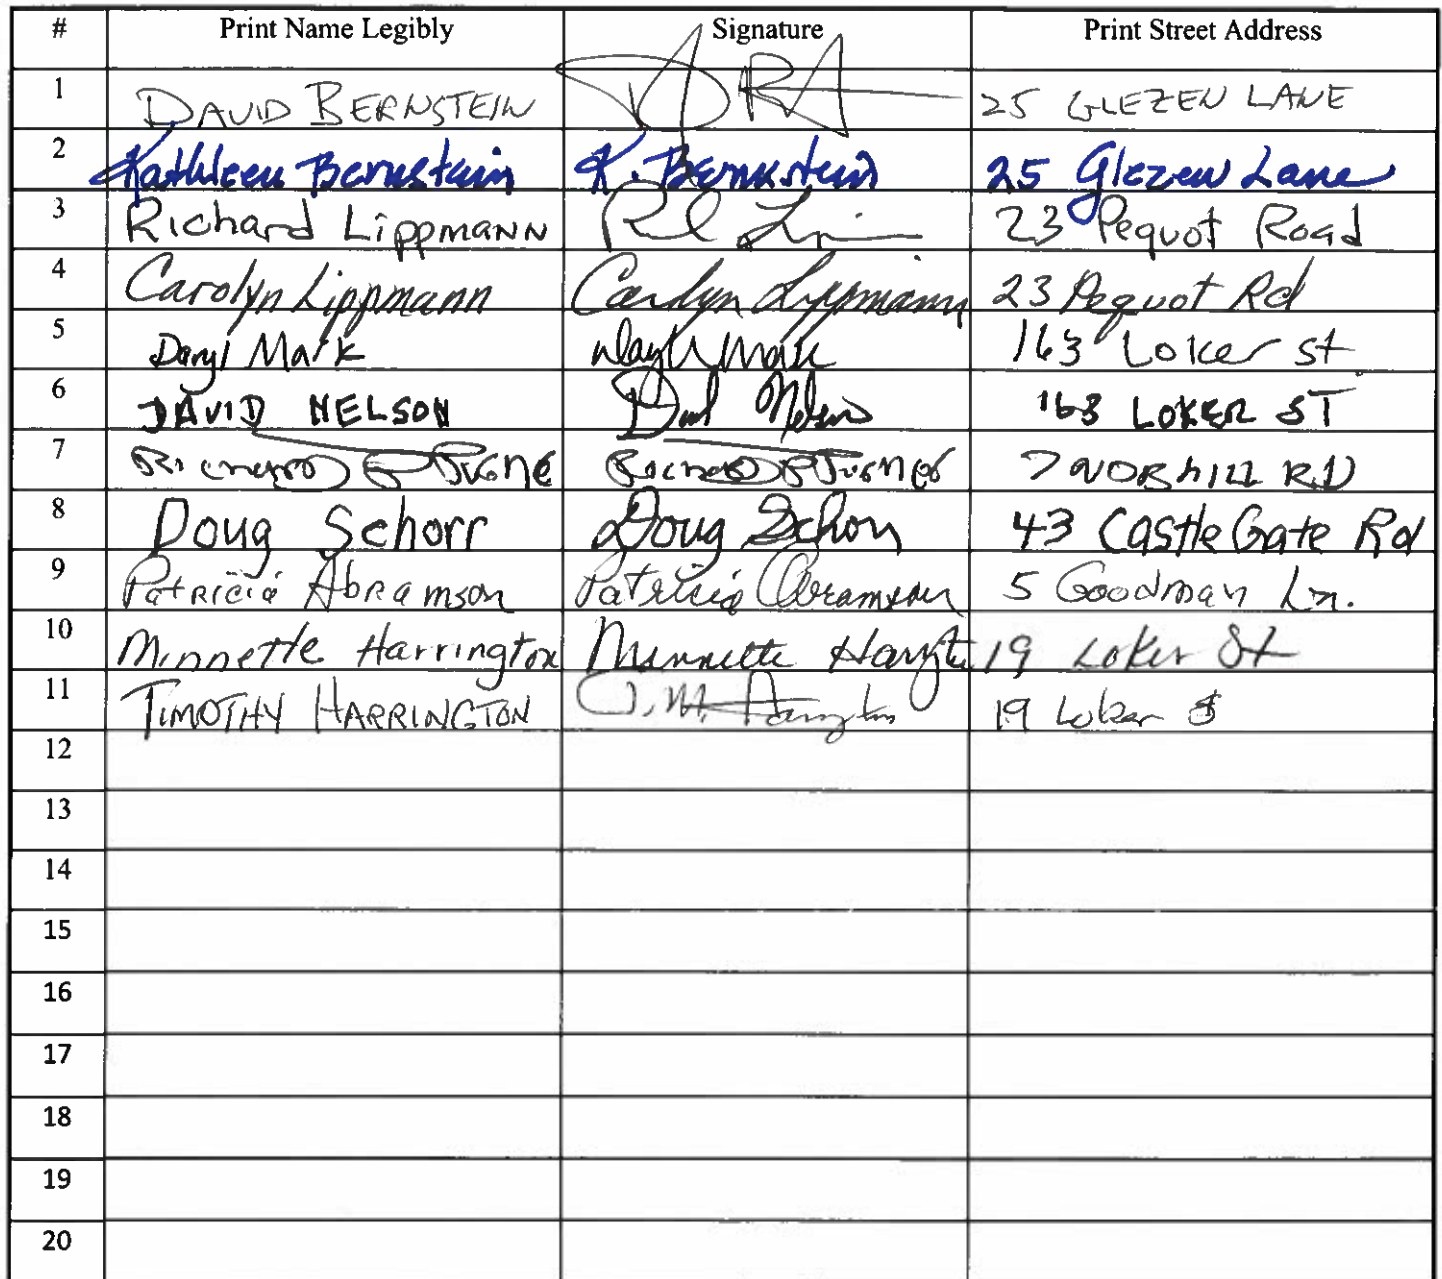 # Print Name Legibly Signature Print Street Address
1 DAVID BERNSTEIN 25 GLEZEN LANE
2 Kathleen Bernstein K. Bernstein 25 Glezen Lane
3 Richard Lippmann 23 Pequot Road
4 Carolyn Lippmann Carolyn Lippmann 23 Pequot Rd
5 Daryl Mark 163 Loker St
6 DAVID NELSON David Nelson 163 LOKER ST
7 7 NOBHILL RD
8 Doug Schorr Doug Schorr 43 Castle Gate Rd
9 Patricia Abramson Patricia Abramson 5 Goodman Ln.
10 Minnette Harrington Minnette 19 Loker St
11 TIMOTHY HARRINGTON T.M. Harrington 19 Loker
12
13
14
15
16
17
18
19
20